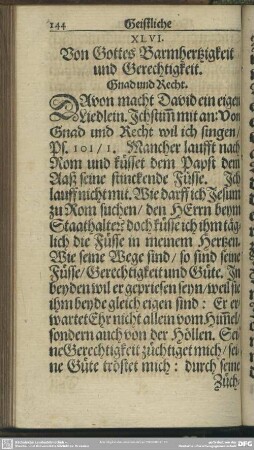 144 Geistliche
XLVI.
Von Gottes Barmhertzigkeit
und Gerechtigkeit.
Gnad und Recht.
DAvon macht David ein eigen
Liedlein. Ich stim̃ mit an: Von
Gnad und Recht wil ich singen/
Ps. 101/1. Mancher laufft nach
Rom und küsset dem Papst dem
Aaß seine stinckende Füsse. Ich
lauff nicht mit. Wie darff ich Jesum
zu Rom suchen/ den HErrn beym
Staathalter? doch küsse ich ihm täg-
lich die Füsse in meinem Hertzen.
Wie seine Wege sind/ so sind seine
Füsse/ Gerechtigkeit und Güte. In
beyden wil er gepriesen seyn/ weil sie
ihm beyde gleich eigen sind: Er er-
wartet Ehr nicht allein vom Him̃el/
sondern auch von der Höllen. Sei-
ne Gerechtigkeit züchtiget mich/ sei-
ne Güte tröstet mich: durch seine
Züch-
DFG